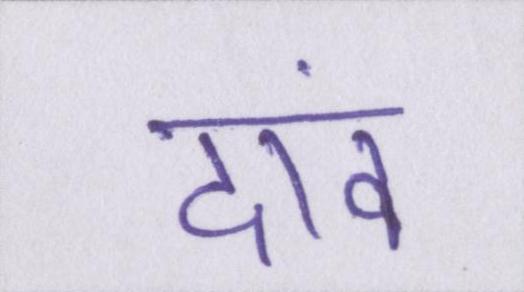 दांव